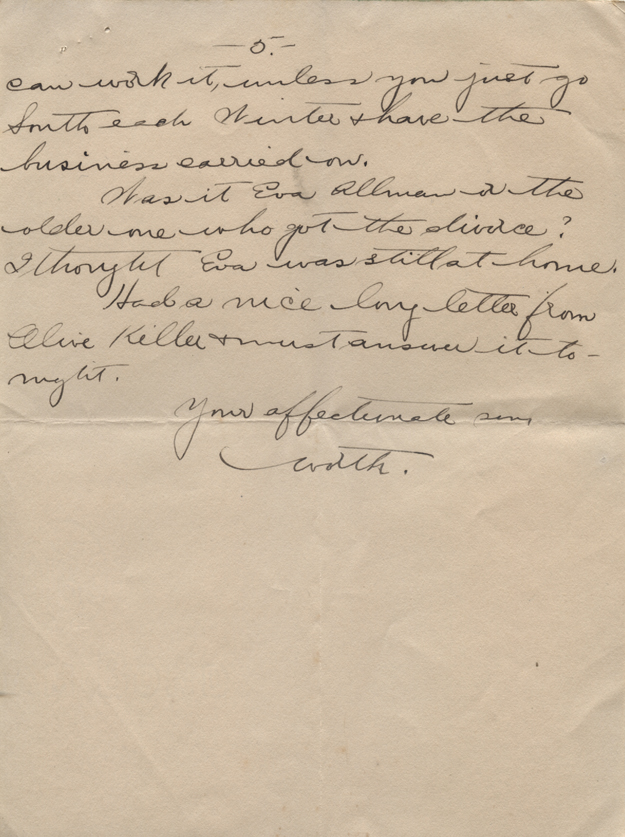 -5.-
can work it, unless you just go
South each Winter & have the
business carried on.
Was it Eva Allman or the
older one who got the divorce?
I thought Eva was still at home.
Had a nice long letter from
Olive Keller & must answer it to-
night.
Your affectionate son,
Worth.